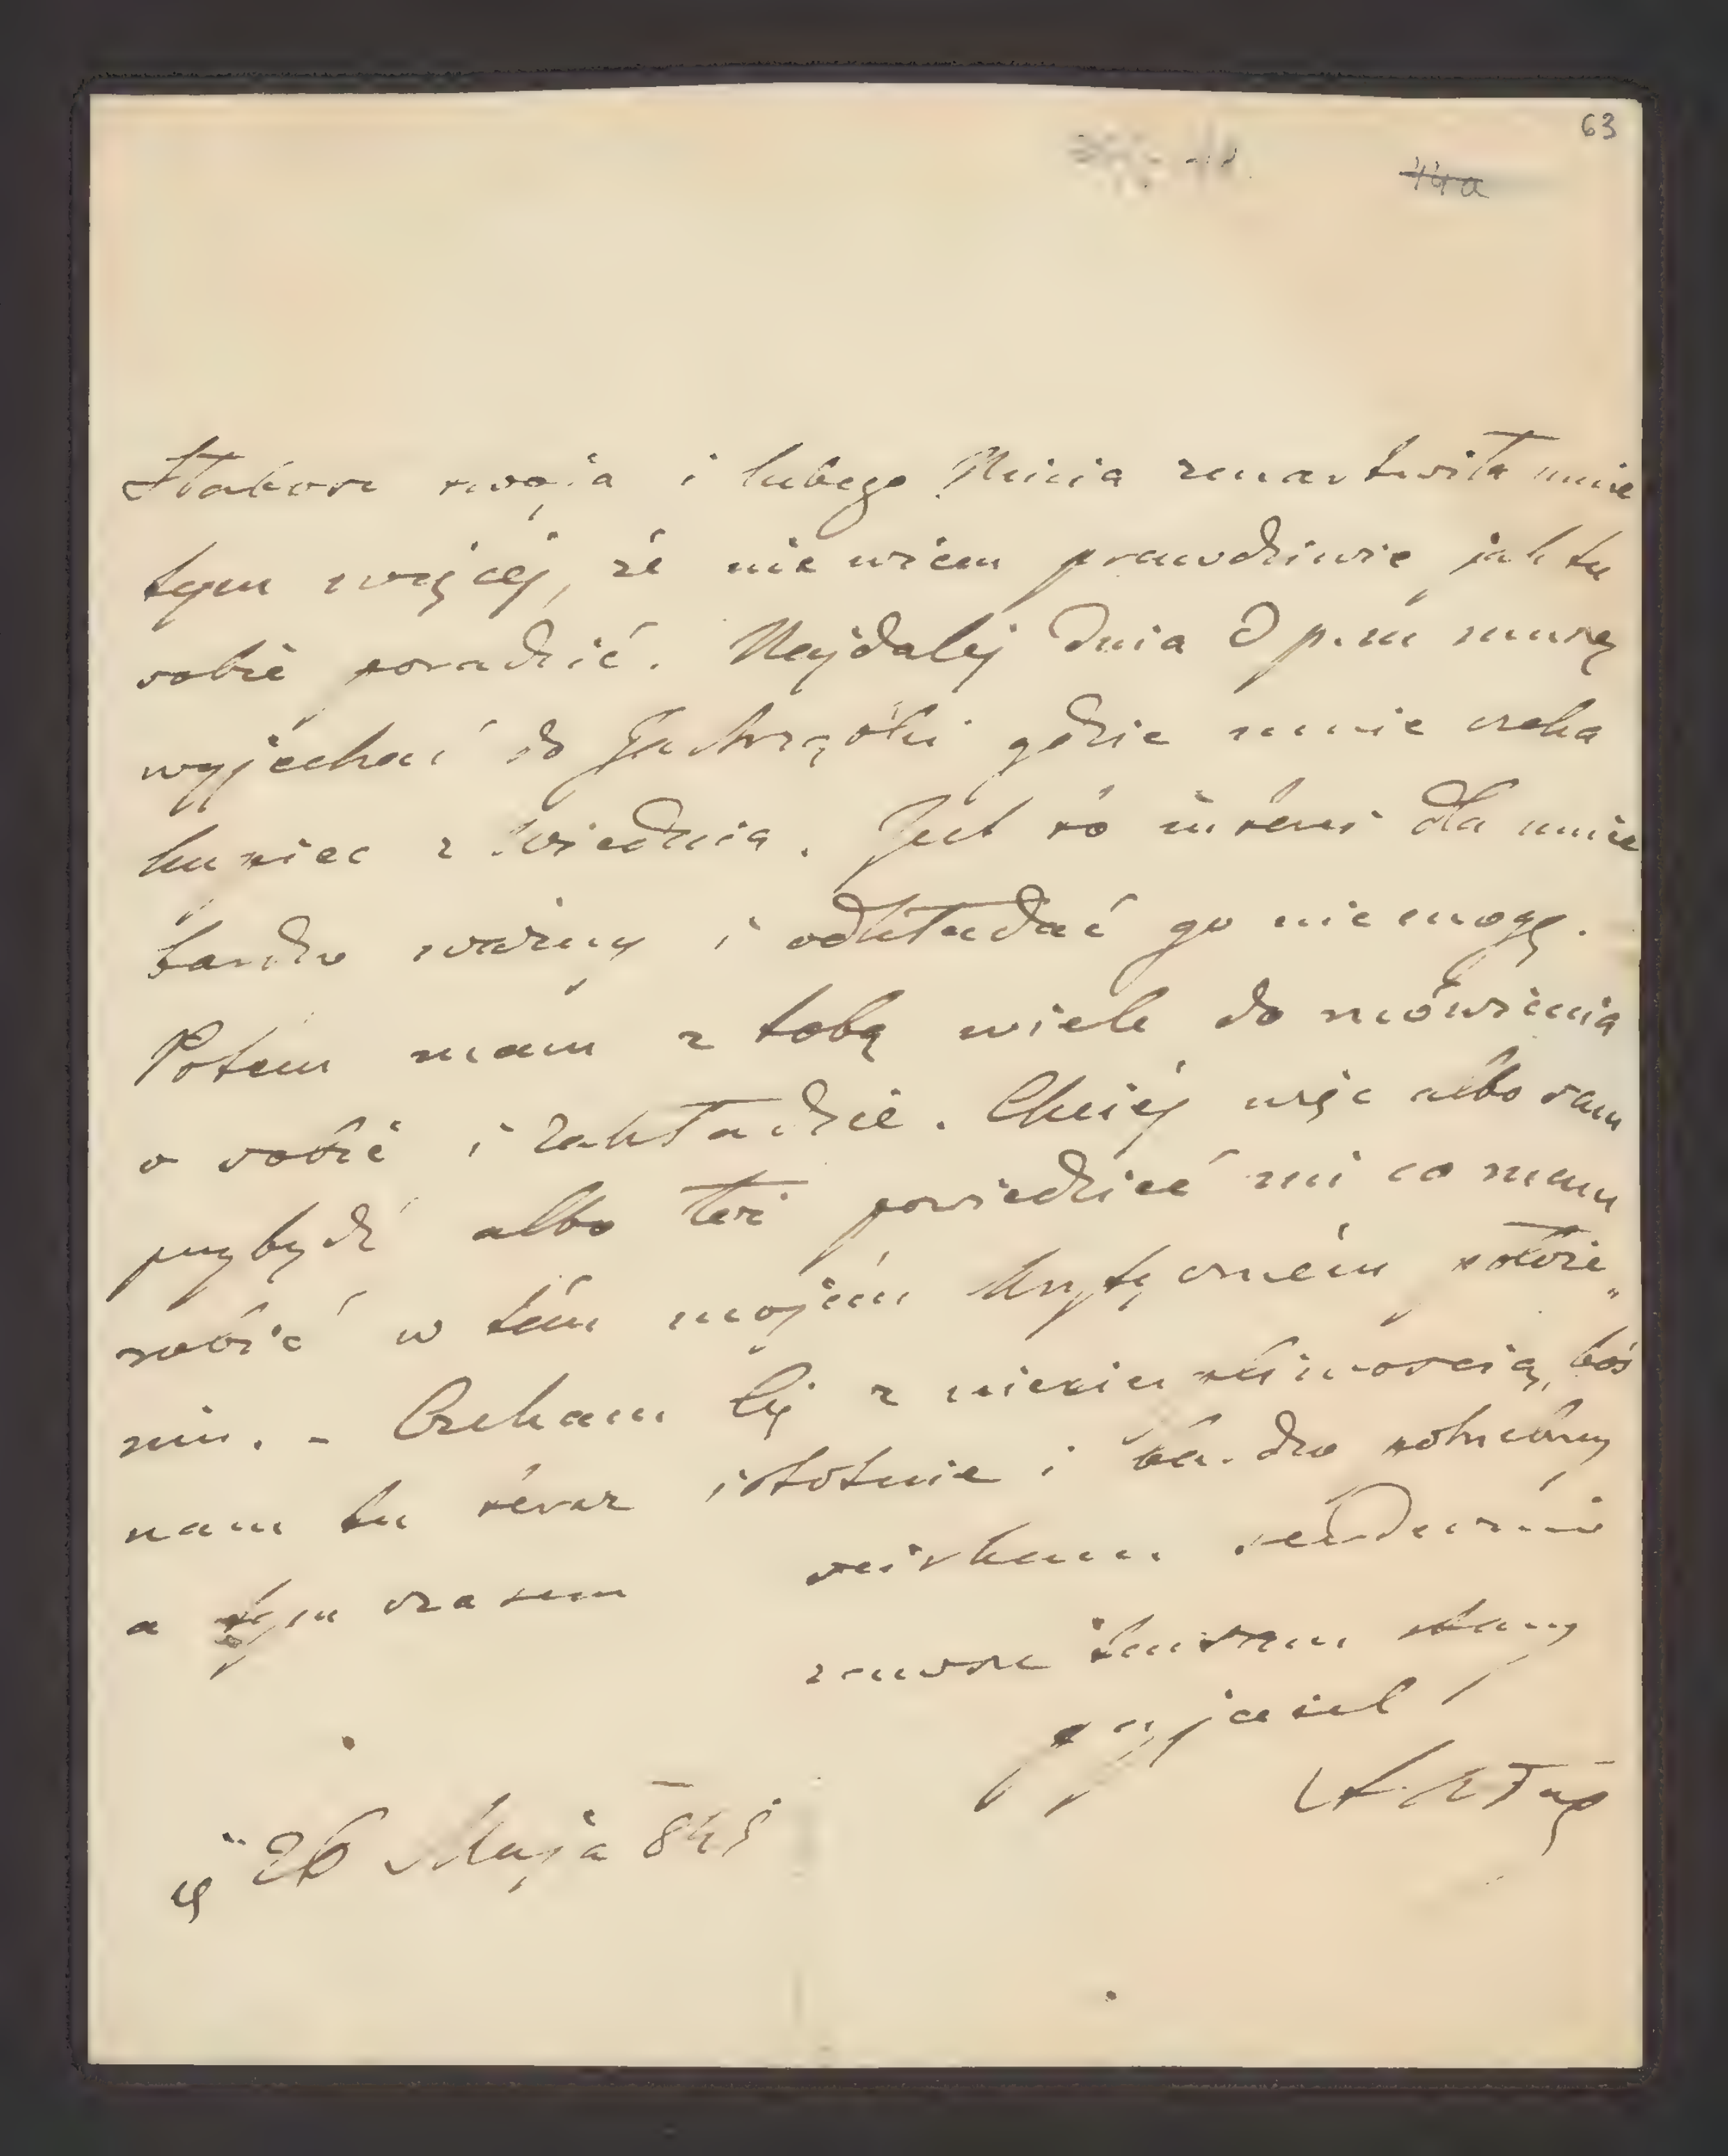 63
44a
Słabość twoja i lubego Minia zmartwiła mnie
tym więcej, że nie wiem prawdziwie jak tu
sobie poradzić. Najdalej dnia 2 p.m muszę
wyjechać do gdzie mnie czeka
kupiec z Wiednia. Jest to interes dla mnie
bardzo ważny i odkładać go nie mogę.
Potem mam z tobą wiele do mówienia
o sobie i zakładzie. Chciéj więc albo sam
przybydź albo też powiedzieć mi co mam
robić w tém mojém krytyczném położe„
niu. - Czekam Cię z niecierpliwością, boś
nam tu teraz istotnie i bardzo potrzebny
a tym czasem ściskam serdecznie
zawsze tenżesam stary
przyjaciel
26 Maja 845